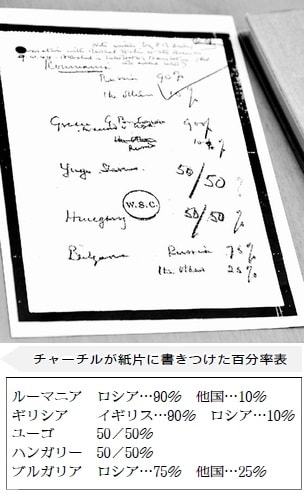 Roumania
Russia 90%
The others 10%
Greece G. Britain 90%
Russia 10%
Yugoslavia 50/50 %
W.S.C.
Hungary 50/50 %
Bulgaria Russia 75%
The others 25%
チャーチルが紙片に書きつけた百分率表
ルーマニア ロシア…90% 他国…10%
ギリシア イギリス…90% ロシア…10%
ユーゴ 50／50%
ハンガリー 50／50%
ブルガリア ロシア…75% 他国…25%